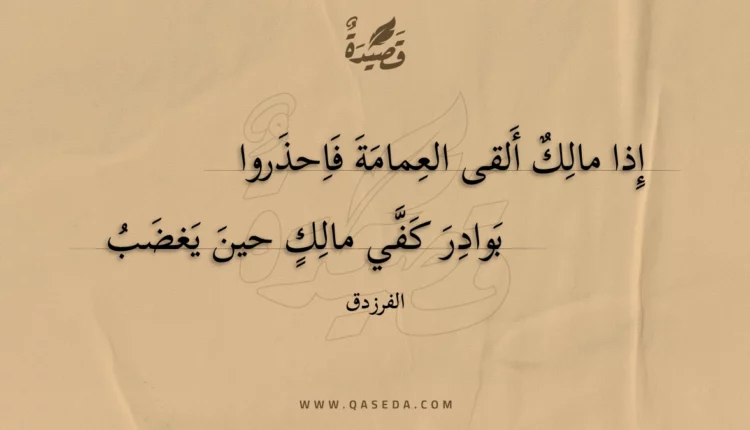 قَصِيْدَةٌ
إِذا مالِكٌ أَلقى العِمامَةَ فَاِحذَروا
بَوادِرَ كَفَّي مالِكٍ حينَ يَغضَبُ
الفرزدق
WWW.QASEDA.COM